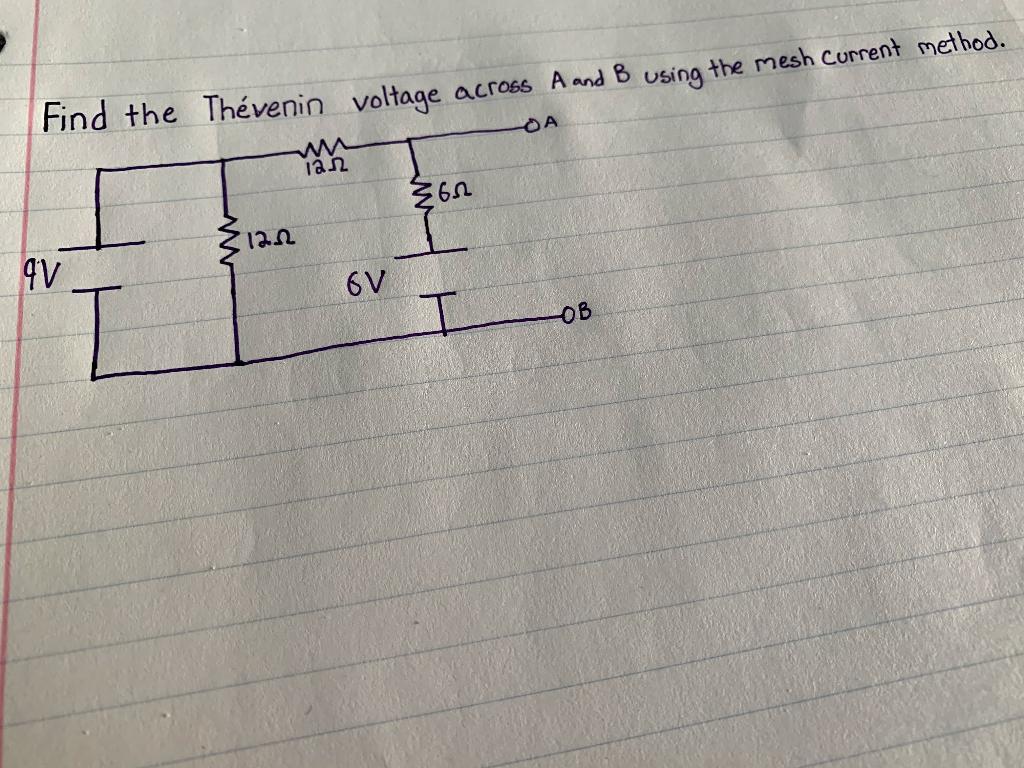 Find the Thévenin voltage across A and B using the mesh current method.
A
12Ω
6Ω
12Ω
9V
6V
B